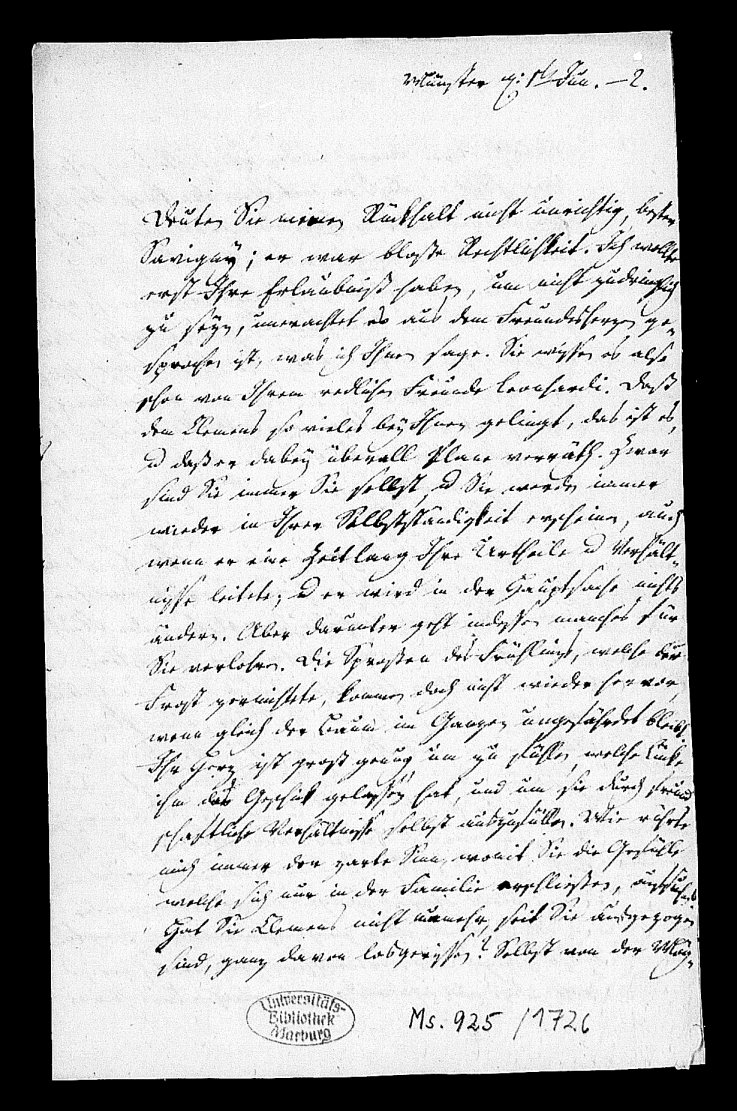 Münster d: 1t Jun. –2.
Deuten Sie meinen Rückhalt nicht unrichtig, bester
Savigny; er war bloße Rechtlichkeit. Ich wollte
erst Ihre Erlaubniß haben, um nicht zudringlich
zu seyn, unerachtet es aus dem Freundesherzen ge-
sprochen ist, was ich Ihnen sage. Sie wissen es also
schon von Ihrem redlichen Freunde Leonhardi. Daß
dem Clemens so vieles bey Ihnen gelingt, das ist es,
u daß er dabey überall Plane verräth. Zwar
sind Sie immer Sie selbst, u Sie werden immer
wieder in Ihrer Selbstständigkeit erscheinen, auch
wenn er eine Zeitlang Ihre Urtheile u Verhält-
nisse leitete; u er wird in der Hauptsache nichts
ändern. Aber darunter geht indessen manches für
Sie verlohren. Die Sprossen des Frühlings, welche der
Frost vernichtete, kommen doch nicht wieder hervor,
wenn gleich der Baum im Ganzen ungefährdet bleibt.
Ihr Herz ist groß genug um zu fühlen, welche Lücke
ihm das Geschick gelassen hat, und um sie durch freund
schaftliche Verhältnisse selbst auszufüllen. Wie rührte
mich immer der zarte Sinn, womit Sie die Gefühle,
welche sich nur in der Familie erschließen,
Hat Sie Clemens nicht nunmehr, seit Sie ausgezogen
sind, ganz davon losgerissen? Selbst von der
Universitäts-
Bibliothek
Marburg
Ms. 925 /1726